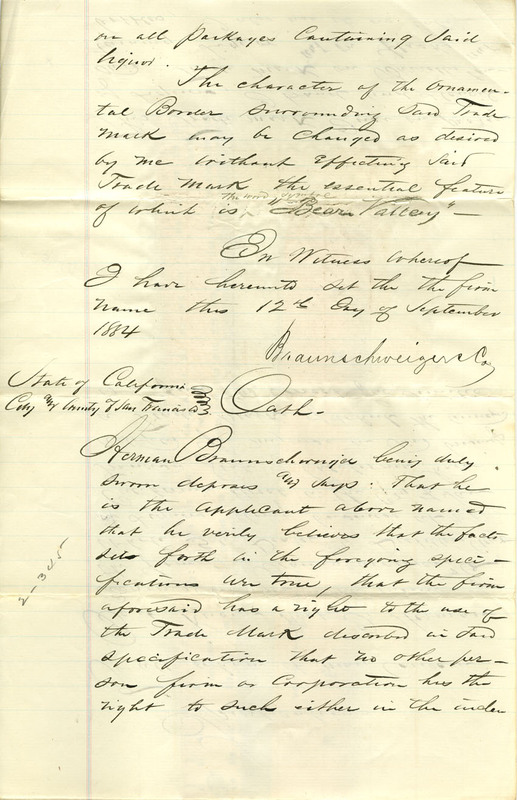 on all packages Containing Said
liquor.
The character of the Ornamen-
tal Border surrounding Said Trade
Mark may be Changed as desired
by me without Effecting Said
Trade Mark the essential feature
the word symbol
of which is "Bear Valley" -
In Witness Whereof
I have hereunto set the the firm
name this 12th Day of September
1884
Braunschweiger & Co
State of California
City and County of San Francisco
Oath -
Herman Braunschweiger being duly
sworn deposes and says: That he
is the applicant above named
that he verily believes that the facts
sets forth in the foregoing speci-
fications are true, that the firm
aforesaid has a right to the use of
the Trade Mark described in said
specification that no other per-
son firm or Corporation has the
right to such either in the iden
2-345